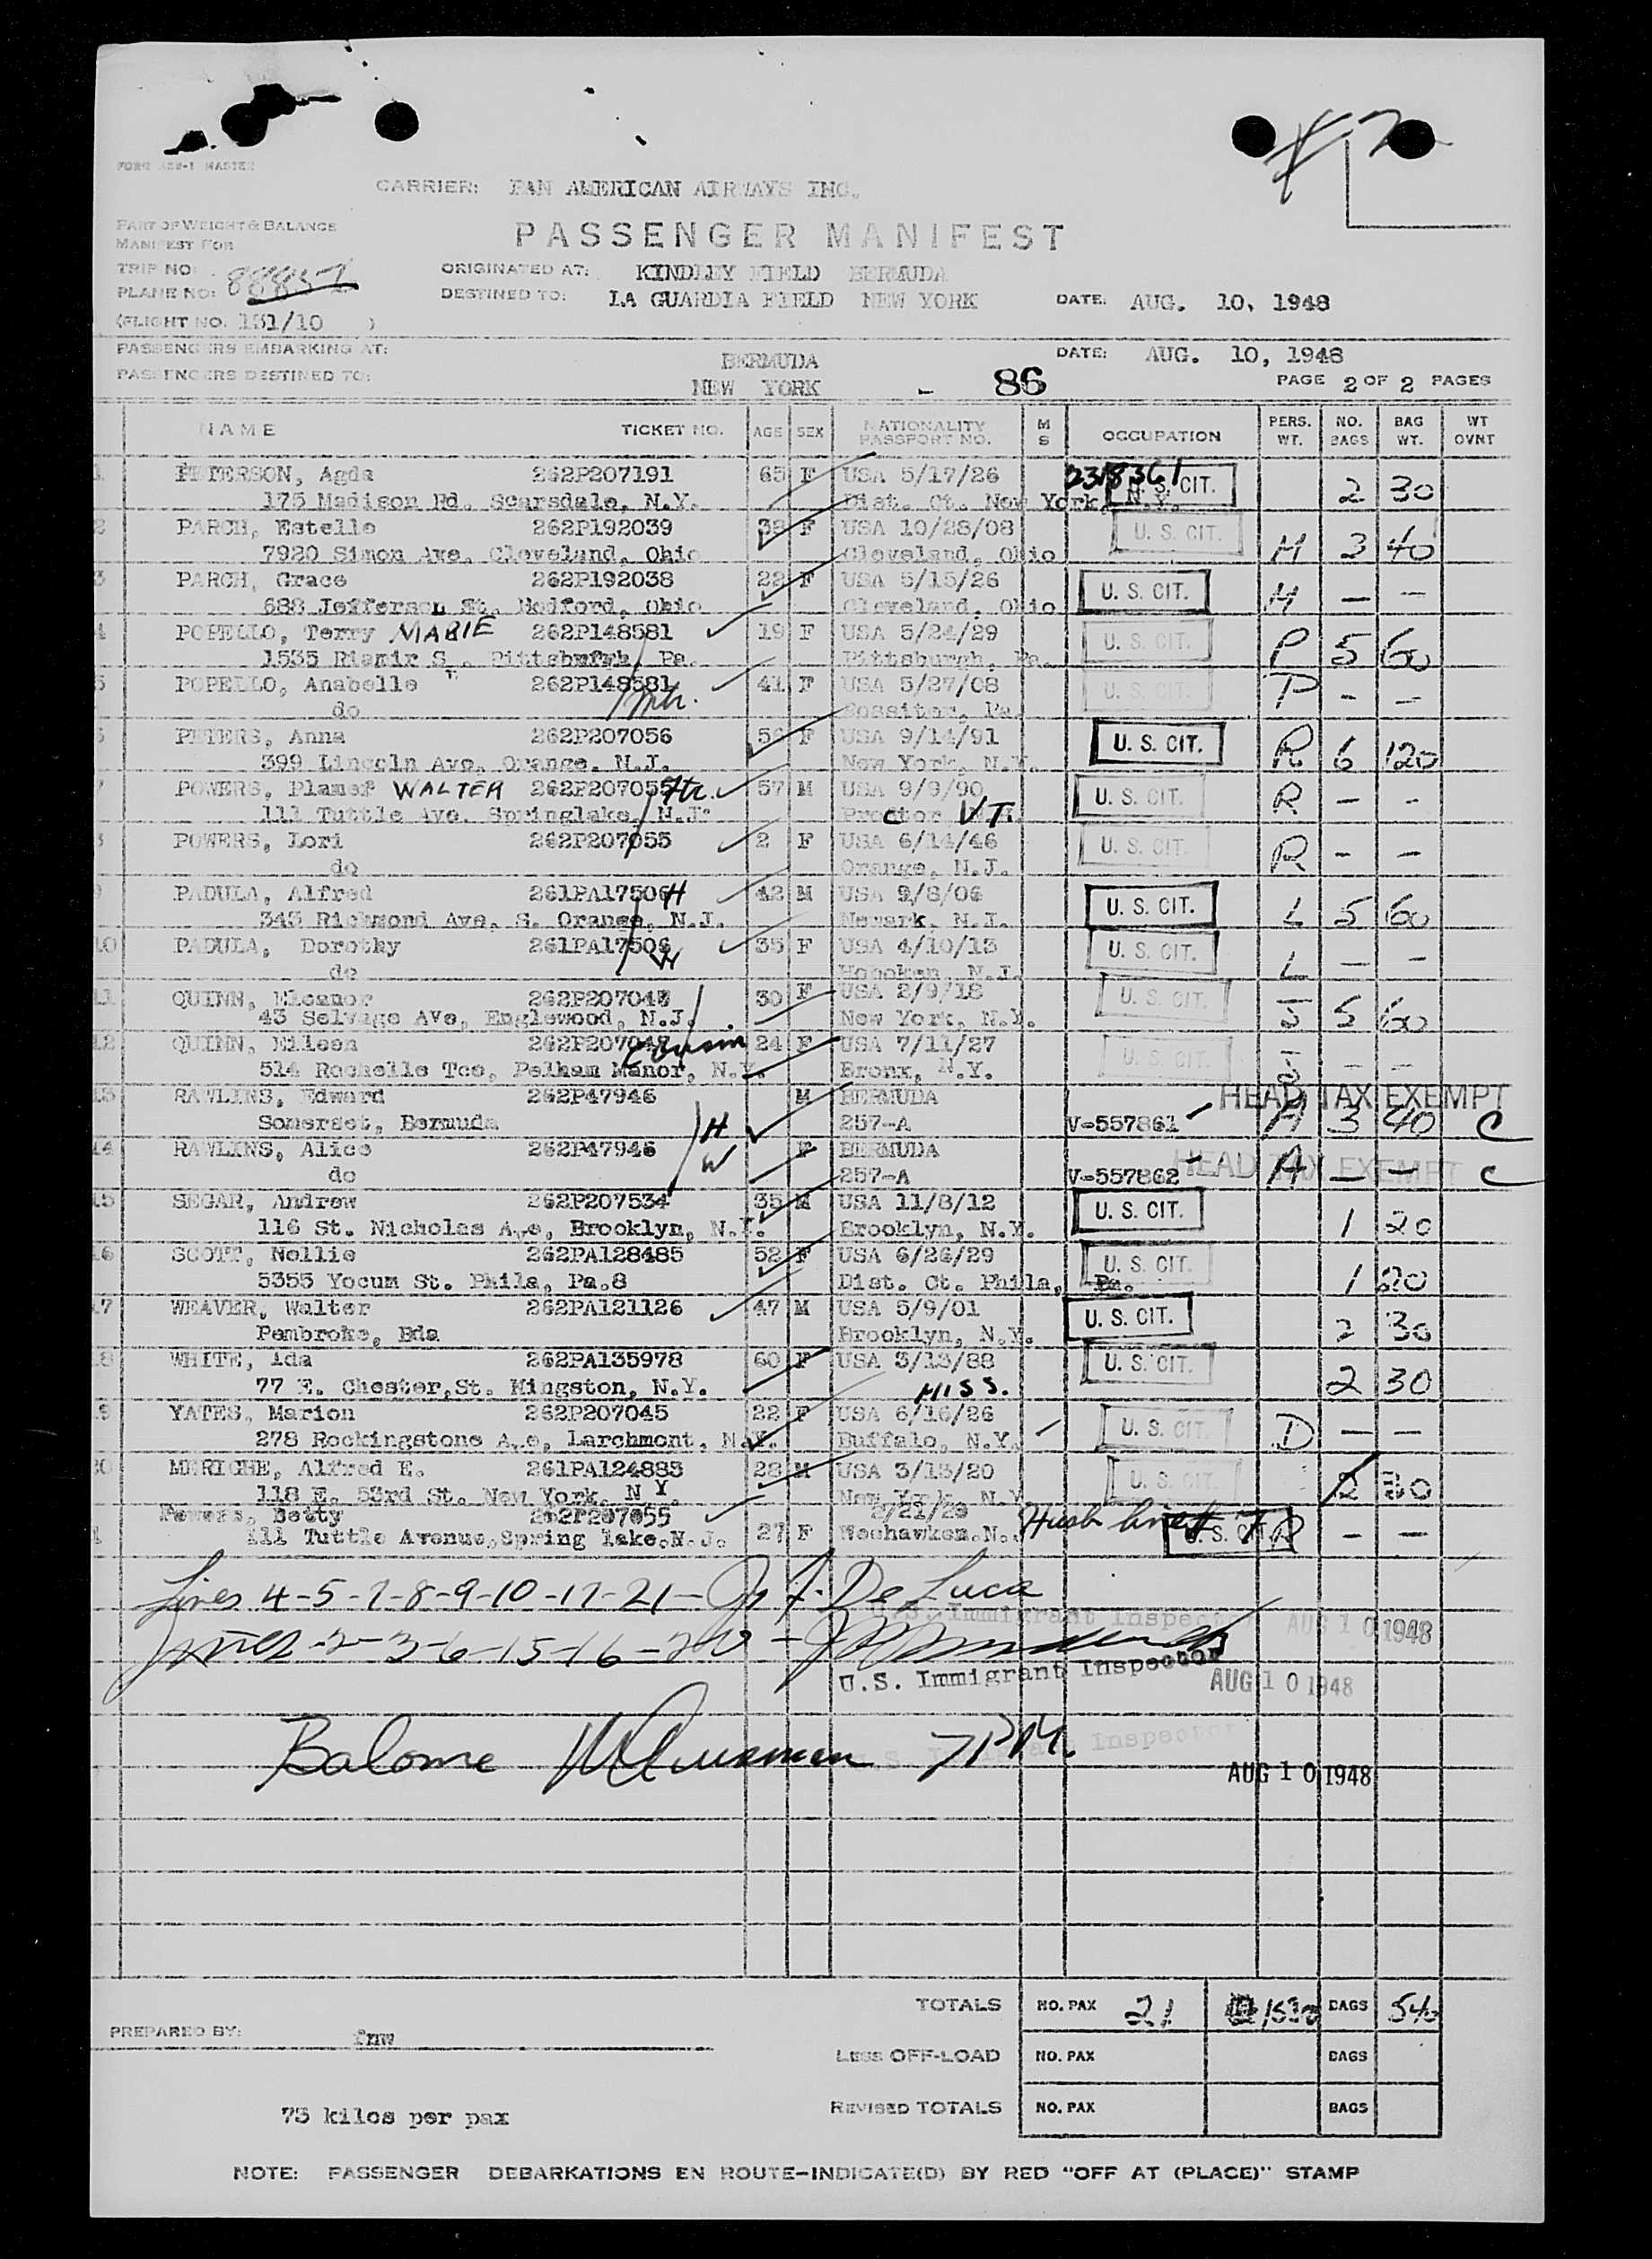 CARRIER: PAN AMERICAN AIRWAYS INC.
PART OF WEIGHT & BALANCE
MANIFEST FOR
PASSENGER MANIFEST
TRIP NO.
ORIGINATED AT: KINDLEY FIELD BERMUDA
PLANE NO: 88857
DESTINED TO: LA GUARDIA FIELD NEW YORK DATE: AUG. 10, 1948
(FLIGHT NO. 131/10 )
PASSENGERS EMBARKING AT: BERMUDA DATE: AUG. 10, 1948
PASSENGERS DESTINED TO: NEW YORK - 86 PAGE 2 OF 2 PAGES
NAME TICKET NO. AGE SEX NATIONALITY PASSPORT NO. M S OCCUPATION PERS. WT. NO. BAGS BAG WT. WT OVNT
1 PETERSON, Agda 262P207191 65 F USA 5/17/26 2318361 U. S. CIT. 2 30
175 Madison Rd. Scarsdale, N.Y. Dist. Ct. New York, N.Y.
2 PARCH, Estelle 262P192039 38 F USA 10/28/08 U. S. CIT. H 3 40
7920 Simon Ave, Cleveland, Ohio Cleveland, Ohio
3 PARCH, Grace 262P192038 22 F USA 5/15/26 U. S. CIT. H - -
688 Jefferson St, Bedford, Ohio Cleveland, Ohio
4 POPELLO, Terry MARIE 262P148581 19 F USA 5/24/29 U. S. CIT. P 5 60
1535 St. Pittsburgh, Pa. Pittsburgh, Pa.
5 POPELLO, Anabelle 262P148581 41 F USA 5/27/08 U. S. CIT. P - -
do Mtr. Rossiter, Pa.
6 PETERS, Anna 262P207056 56 F USA 9/14/91 U. S. CIT. R 6 120
399 Lincoln Ave, Orange, N.J. New York, N.Y.
7 POWERS, WALTER 262P207055 Ftr. 57 M USA 9/9/90 U. S. CIT. R - -
111 Tuttle Ave. Springlake, N.J. Proctor VT.
8 POWERS, Lori 262P207055 2 F USA 6/14/46 U. S. CIT. R - -
do Orange, N.J.
9 PADULA, Alfred 261PA17506 H 42 M USA 9/8/06 U. S. CIT. L 5 60
343 Richmond Ave, S. Orange, N.J. Newark, N.J.
10 PADULA, Dorothy 261PA17506 W 35 F USA 4/10/13 U. S. CIT. L - -
do Hoboken, N.J.
11 QUINN, Eleanor 262P207048 30 F USA 2/9/18 U. S. CIT. J 5 60
43 Selvage AVe, Englewood, N.J. New York, N.Y.
12 QUINN, Eileen 262P207047 Cousin 24 F USA 7/11/27 U. S. CIT. J - -
514 Rochelle Tce, Pelham Manor, N.Y. Bronx, N.Y.
13 RAWLINS, Edward 262P47946 M BERMUDA HEAD TAX EXEMPT
Somerset, Bermuda H 257-A V-557861 A 3 40 C
14 RAWLINS, Alice 262P47946 W F BERMUDA HEAD TAX EXEMPT
do 257-A V-557862 A - - C
15 SEGAR, Andrew 262P207534 35 M USA 11/8/12 U. S. CIT. 1 20
116 St. Nicholas Ave, Brooklyn, N.Y. Brooklyn, N.Y.
16 SCOTT, Nellie 262PA128485 52 F USA 6/26/29 U. S. CIT. 1 20
5355 Yocum St. Phila, Pa.8 Dist. Ct. Phila, Pa.
17 WEAVER, Walter 262PA121126 47 M USA 5/9/01 U. S. CIT. 2 30
Pembroke, Bda Brooklyn, N.Y.
18 WHITE, Ada 262PA135978 60 F USA 3/13/88 U. S. CIT. 2 30
77 E. Chester,St. Kingston, N.Y. MISS.
19 YATES, Marion 262P207045 22 F USA 6/16/26 U. S. CIT. D - -
278 Rockingstone Ave, Larchmont, N.Y. Buffalo, N.Y.
20 MERICHE, Alfred E. 261PA124883 28 M USA 3/13/20 U. S. CIT. 2 30
118 E. 53rd St. New York, N Y. New York, N.Y
Powers, Betty 262P207055 2/21/20
111 Tuttle Avenue,Spring lake,N.J. 27 F Weehawken.N.J U. S. CIT. R - -
Lines 4-5-7-8-9-10-17-21- De Luca
U.S. Immigrant Inspector AUG 10 1948
Lines -2-3-6-15-16-20-
U.S. Immigrant Inspector AUG 10 1948
Balance 7PM.
U.S. Immigrant Inspector AUG 10 1948
TOTALS NO. PAX 21 BAGS 540
PREPARED BY: fnw
LESS OFF-LOAD NO. PAX BAGS
75 kilos per pax REVISED TOTALS NO. PAX BAGS
NOTE: PASSENGER DEBARKATIONS EN ROUTE-INDICATE(D) BY RED "OFF AT (PLACE)" STAMP